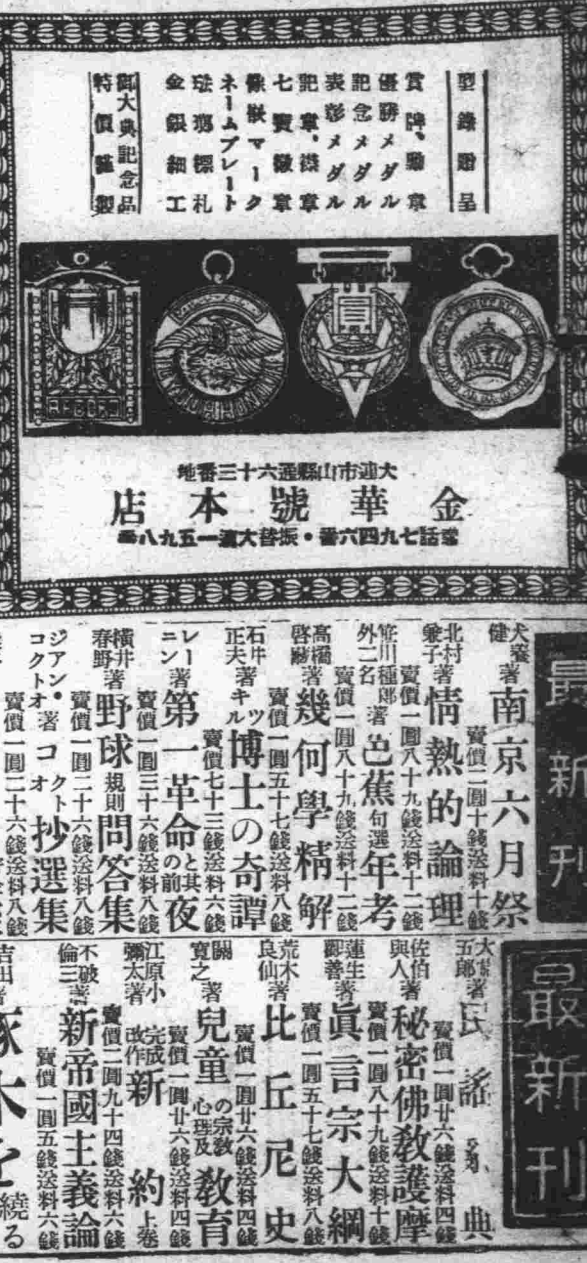 型錄贈呈
賞牌、勳章
優勝メダル
記念メダル
表彰メダル
記章、襟章
七寶徽章
徽獸マーク
ネームプレート
琺瑯標札
金銀細工
御大典記念品
特價謹製
RECORD
大連市山縣通六十三番地
金華號本店
電話七九四六番・振替大連一五九八番
最新刊
犬養健著 南京六月祭
賣價二圓十錢送料十錢
北村兼子著 情熱的論理
賣價一圓八十九錢送料十二錢
笹川種郎外二名著 芭蕉句選年考
賣價一圓八十九錢送料十二錢
高橋著 幾何學精解
賣價一圓五十七錢送料八錢
石井正夫著 キルッ博士の奇譚
賣價七十三錢送料六錢
レーニン著 第一革命と其の前夜
賣價一圓三十六錢送料八錢
橫井春野著 野球規則問答集
賣價一圓二十六錢送料八錢
ジアン・コクトオ著 コクトオ抄選集
賣價一圓二十六錢送料八錢
最新刊
五郎著 民謠 典
賣價一圓廿六錢送料四錢
佐伯與人著 秘密佛教護摩
賣價一圓八十九錢送料十錢
蓮生觀善著 眞言宗大綱
賣價一圓五十七錢送料八錢
荒木良仙著 比丘尼史
賣價一圓廿六錢送料四錢
關寬之著 兒童の宗教心理及教育
賣價一圓廿六錢送料四錢
江原小彌太著 完成改作 新約 上卷
賣價二圓九十四錢送料六錢
不破倫三著 新帝國主義論
賣價一圓五錢送料六錢
吉田著 啄木を繞る